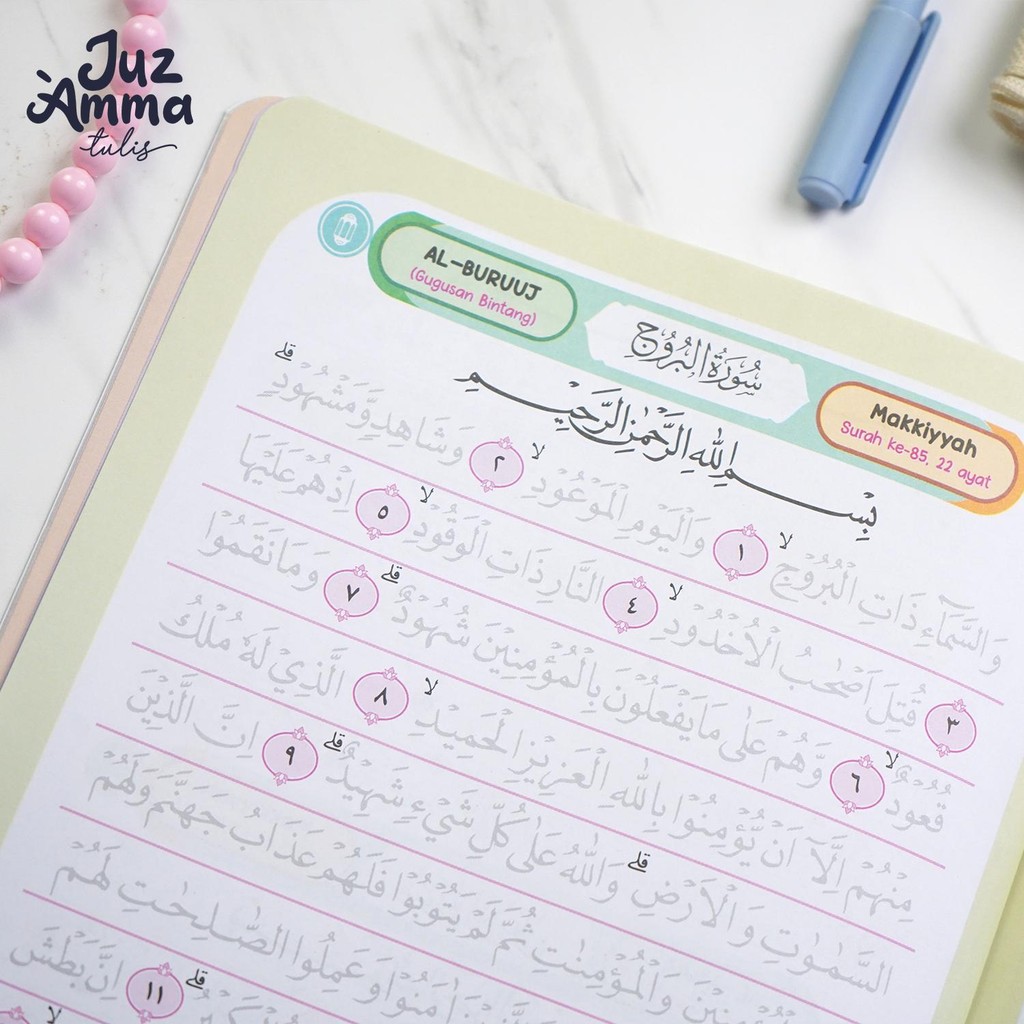 Juz
Amma
tulis
AL-BURUUJ
(Gugusan Bintang)
سُوْرَةُ الْبُرُوْجِ
Makkiyyah
Surah ke-85, 22 ayat
بِسْمِ اللّٰهِ الرَّحْمٰنِ الرَّحِيْمِ
وَالسَّمَاۤءِ ذَاتِ الْبُرُوْجِۙ ١ وَالْيَوْمِ الْمَوْعُوْدِۙ ٢ وَشَاهِدٍ وَّمَشْهُوْدٍۗ
٣ قُتِلَ اَصْحٰبُ الْاُخْدُوْدِۙ ٤ النَّارِ ذَاتِ الْوَقُوْدِۙ ٥ اِذْ هُمْ عَلَيْهَا
قُعُوْدٌۙ ٦ وَّهُمْ عَلٰى مَا يَفْعَلُوْنَ بِالْمُؤْمِنِيْنَ شُهُوْدٌۗ ٧ وَمَا نَقَمُوْا
مِنْهُمْ اِلَّآ اَنْ يُّؤْمِنُوْا بِاللّٰهِ الْعَزِيْزِ الْحَمِيْدِۙ ٨ الَّذِيْ لَهٗ مُلْكُ
السَّمٰوٰتِ وَالْاَرْضِۗ وَاللّٰهُ عَلٰى كُلِّ شَيْءٍ شَهِيْدٌۗ ٩ اِنَّ الَّذِيْنَ
وَالْمُؤْمِنٰتِ ثُمَّ لَمْ يَتُوْبُوْا فَلَهُمْ عَذَابُ جَهَنَّمَ وَلَهُمْ
اٰمَنُوْا وَعَمِلُوا الصّٰلِحٰتِ لَهُمْ
١١ اِنَّ بَطْشَ